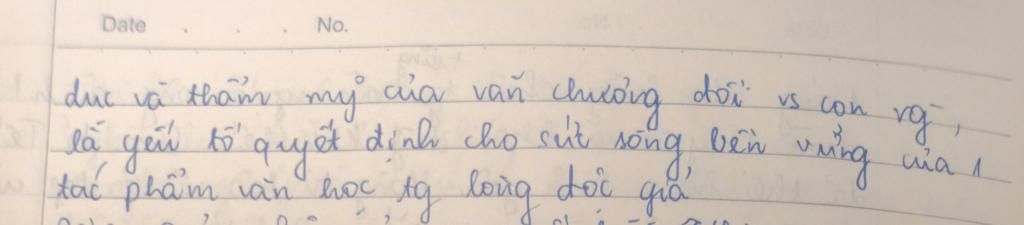 Date . . . No.
dục và thẩm mỹ của văn chương đối vs con ng,
là yếu tố quyết định cho sức sống bền vững của 1
tác phẩm văn học tg lòng độc giả